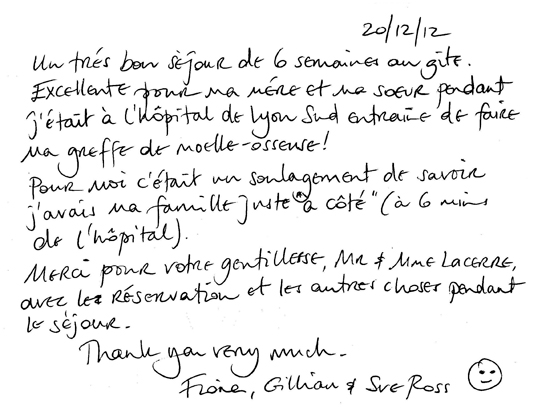 20/12/12
Un trés bon sèjour de 6 semaines au gîte.
Excellente pour ma mére et ma soeur pendant
j'était à l'hôpital de Lyon Sud entraine de faire
ma greffe de moelle-osseuse!
Pour moi c'était un soulagement de savoir
j'avais ma famille juste "à côté" (à 6 mins
de l'hôpital).
Merci pour votre gentillesse, Mr & Mme Lacerre,
avec les réservation et les autres choses pendant
le séjour.
Thank you very much.
Fiona, Gillian & Sue Ross